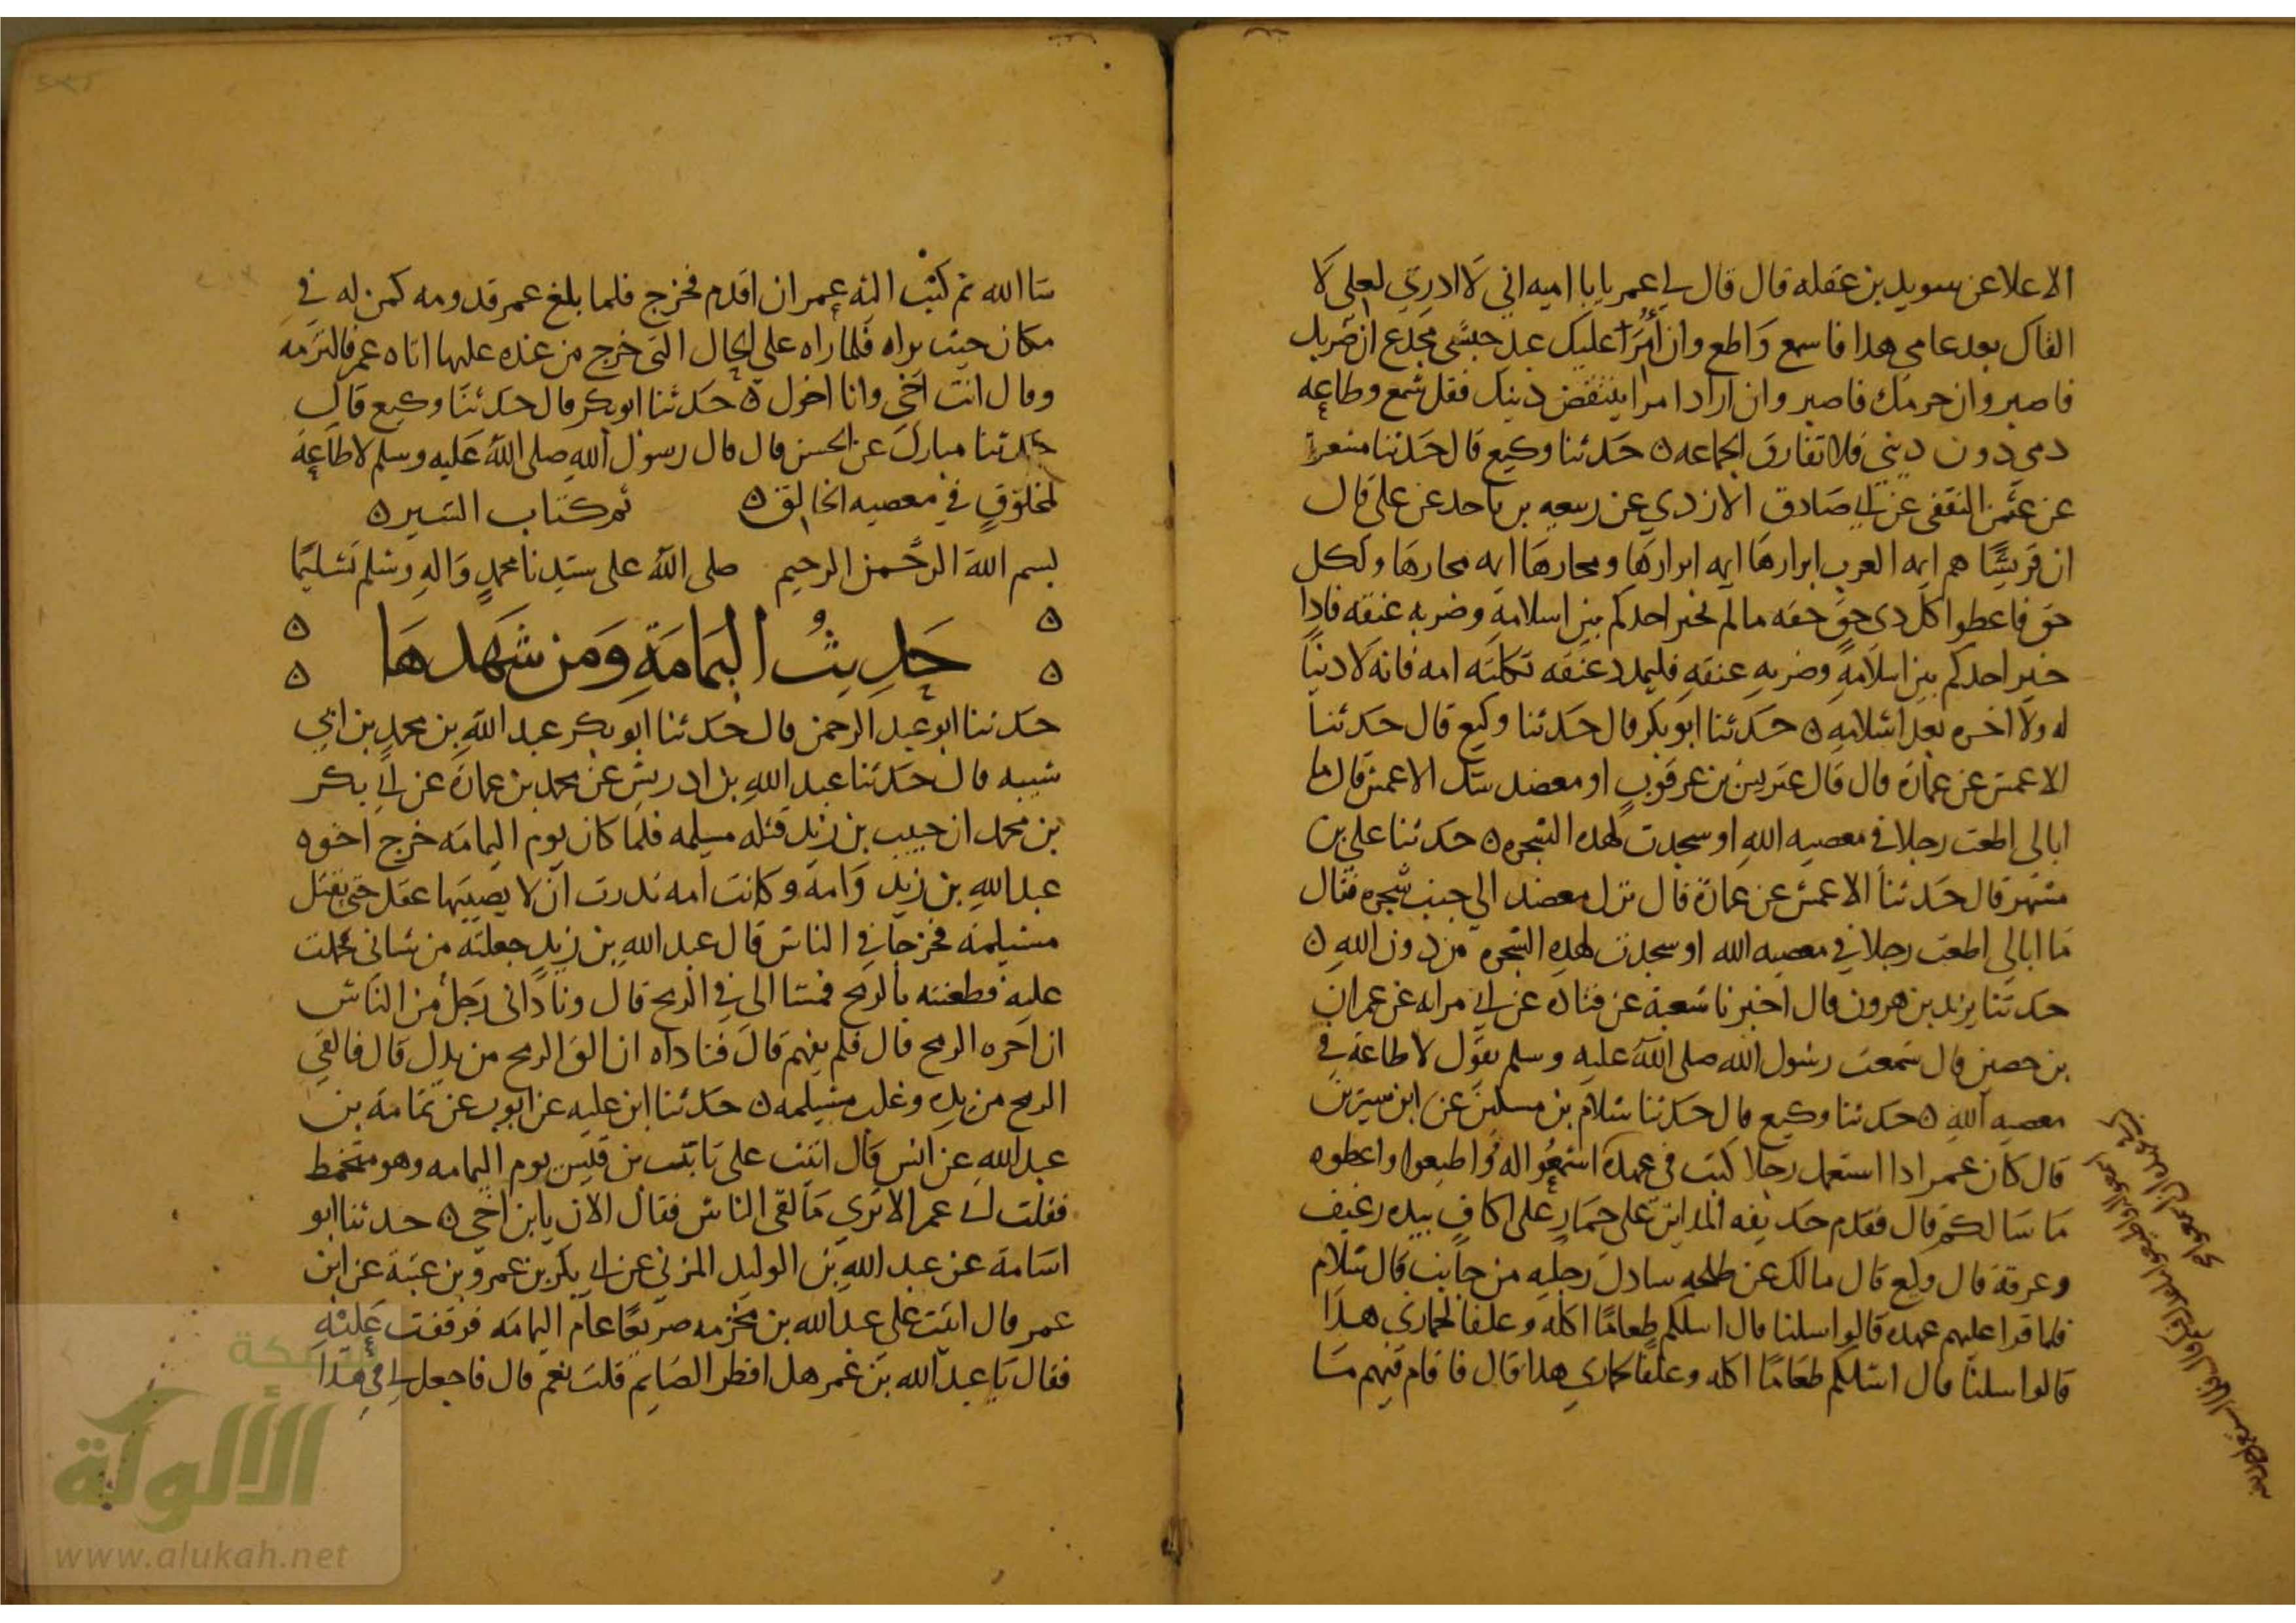 الاعلا عن سويد بن غفله قال قال لي عمر يابا اميه اني لا ادري لعلي لا
القاك بعد عامي هدا فاسمع واطع وان امر عليك عبد حبشي مجدع ان ضربك
فاصبر وان حرمك فاصبر وان اراد امرا ينتقض دينك فقل سمع وطاعه
دمي دون ديني فلا تفارق الجماعه ه حدثنا وكيع قال حدثنا مسعر
عن عثمن الثقفي عن ابي صادق الازدي عن ربيعه بن ناجد عن علي قال
ان قريشا هم ايمه العرب ابرارها ايمه ابرارها وفجارها ايمه فجارها ولكل
حق فاعطوا كل دي حق حقه مالم يخير احدكم بين اسلامه وضرب عنقه فادا
خير احدكم بين اسلامه وضرب عنقه فليمدد عنقه ثكلته امه فانه لا دنيا
له ولا اخره بعد اسلامه ه حدثنا ابوبكر قال حدثنا وكيع قال حدثنا
الاعمش عن عمارة قال قال عتريس بن عرقوب او معضد شك الاعمش قال ما
ابالي اطعت رجلا في معصيه الله او سجدت لهده الشجره ه حدثنا علي بن
مسهر قال حدثنا الاعمش عن عمارة قال نزل معضد الي جنب شجره فقال
ما ابالي اطعت رجلا في معصيه الله او سجدت لهده الشجره من دون الله ه
حدثنا يزيد بن هرون قال اخبرنا شعبة عن قتاده عن ابي مرايه عن عمران
بن حصين قال سمعت رسول الله صلى الله عليه وسلم يقول لا طاعة في
معصيه الله ه حدثنا وكيع قال حدثنا سلام بن مسكين عن ابن سيرين
قال كان عمر ادا استعمل رجلا كتب في عهده اسمعوا له واطيعوا واعطوه
ما سالكم قال فقدم حديفه المداين على حمار على اكاف بيده رغيف
وعرقة قال وكيع قال مالك عن طلحه سادل رجليه من جانب قال سلام
فلما قرا عليهم عهده قالوا سلنا قال اسلكم طعاما اكله وعلفا لحماري هدا
قالوا سلنا قال اسلكم طعاما اكله وعلفا لحماري هدا قال فاقام فيهم ما
شا الله ثم كتب اليه عمر ان اقدم فخرج فلما بلغ عمر قدومه كمن له في
مكان حيث يراه فلما راه على الحال التي خرج من عنده عليها اتاه عمر فالتزمه
وقال انت اخي وانا اخوك ه حدثنا ابوبكر قال حدثنا وكيع قال
حدثنا مبارك عن الحسن قال قال رسول الله صلى الله عليه وسلم لا طاعة
لمخلوق في معصيه الخالق ه تم كتاب السير ه
بسم الله الرحمن الرحيم صلى الله على سيدنا محمد واله وسلم تسليما
حديث اليمامة ومن شهدها
حدثنا ابو عبد الرحمن قال حدثنا ابو بكر عبد الله بن محمد بن ابي
شيبه قال حدثنا عبد الله بن ادريس عن محمد بن عمارة عن ابي بكر
بن محمد ان حبيب بن زيد قتله مسيلمه فلما كان يوم اليمامه خرج اخوه
عبد الله بن زيد وامه وكانت امه ندرت ان لا يصيبها غسل حتى يقتل
مسيلمه فخرجا في الناس قال عبد الله بن زيد جعلته من شاني فحملت
عليه فطعنته بالرمح فمشا الي في الرمح قال وناداني رجل من الناس
ان اجره الرمح قال فلم يفهم قال فناداه ان الق الرمح من يدك قال فالقي
الرمح من يده وغلب مسيلمه ه حدثنا ابن عليه عن ايوب عن ثمامة بن
عبد الله عن انس قال اتيت على ثابت بن قيس يوم اليمامه وهو متحنط
فقلت اي عم الا تري ما لقي الناس فقال الان يابن اخي ه حدثنا ابو
اسامة عن عبد الله بن الوليد المزني عن ابي بكر بن عمرو بن عتبة عن ابن
عمر قال اتيت على عبد الله بن مخرمه صريعا عام اليمامه فوقفت عليه
فقال يا عبد الله بن عمر هل افطر الصايم قلت نعم قال فاجعل لي في هذا
شبكة
الألوكة
www.alukah.net